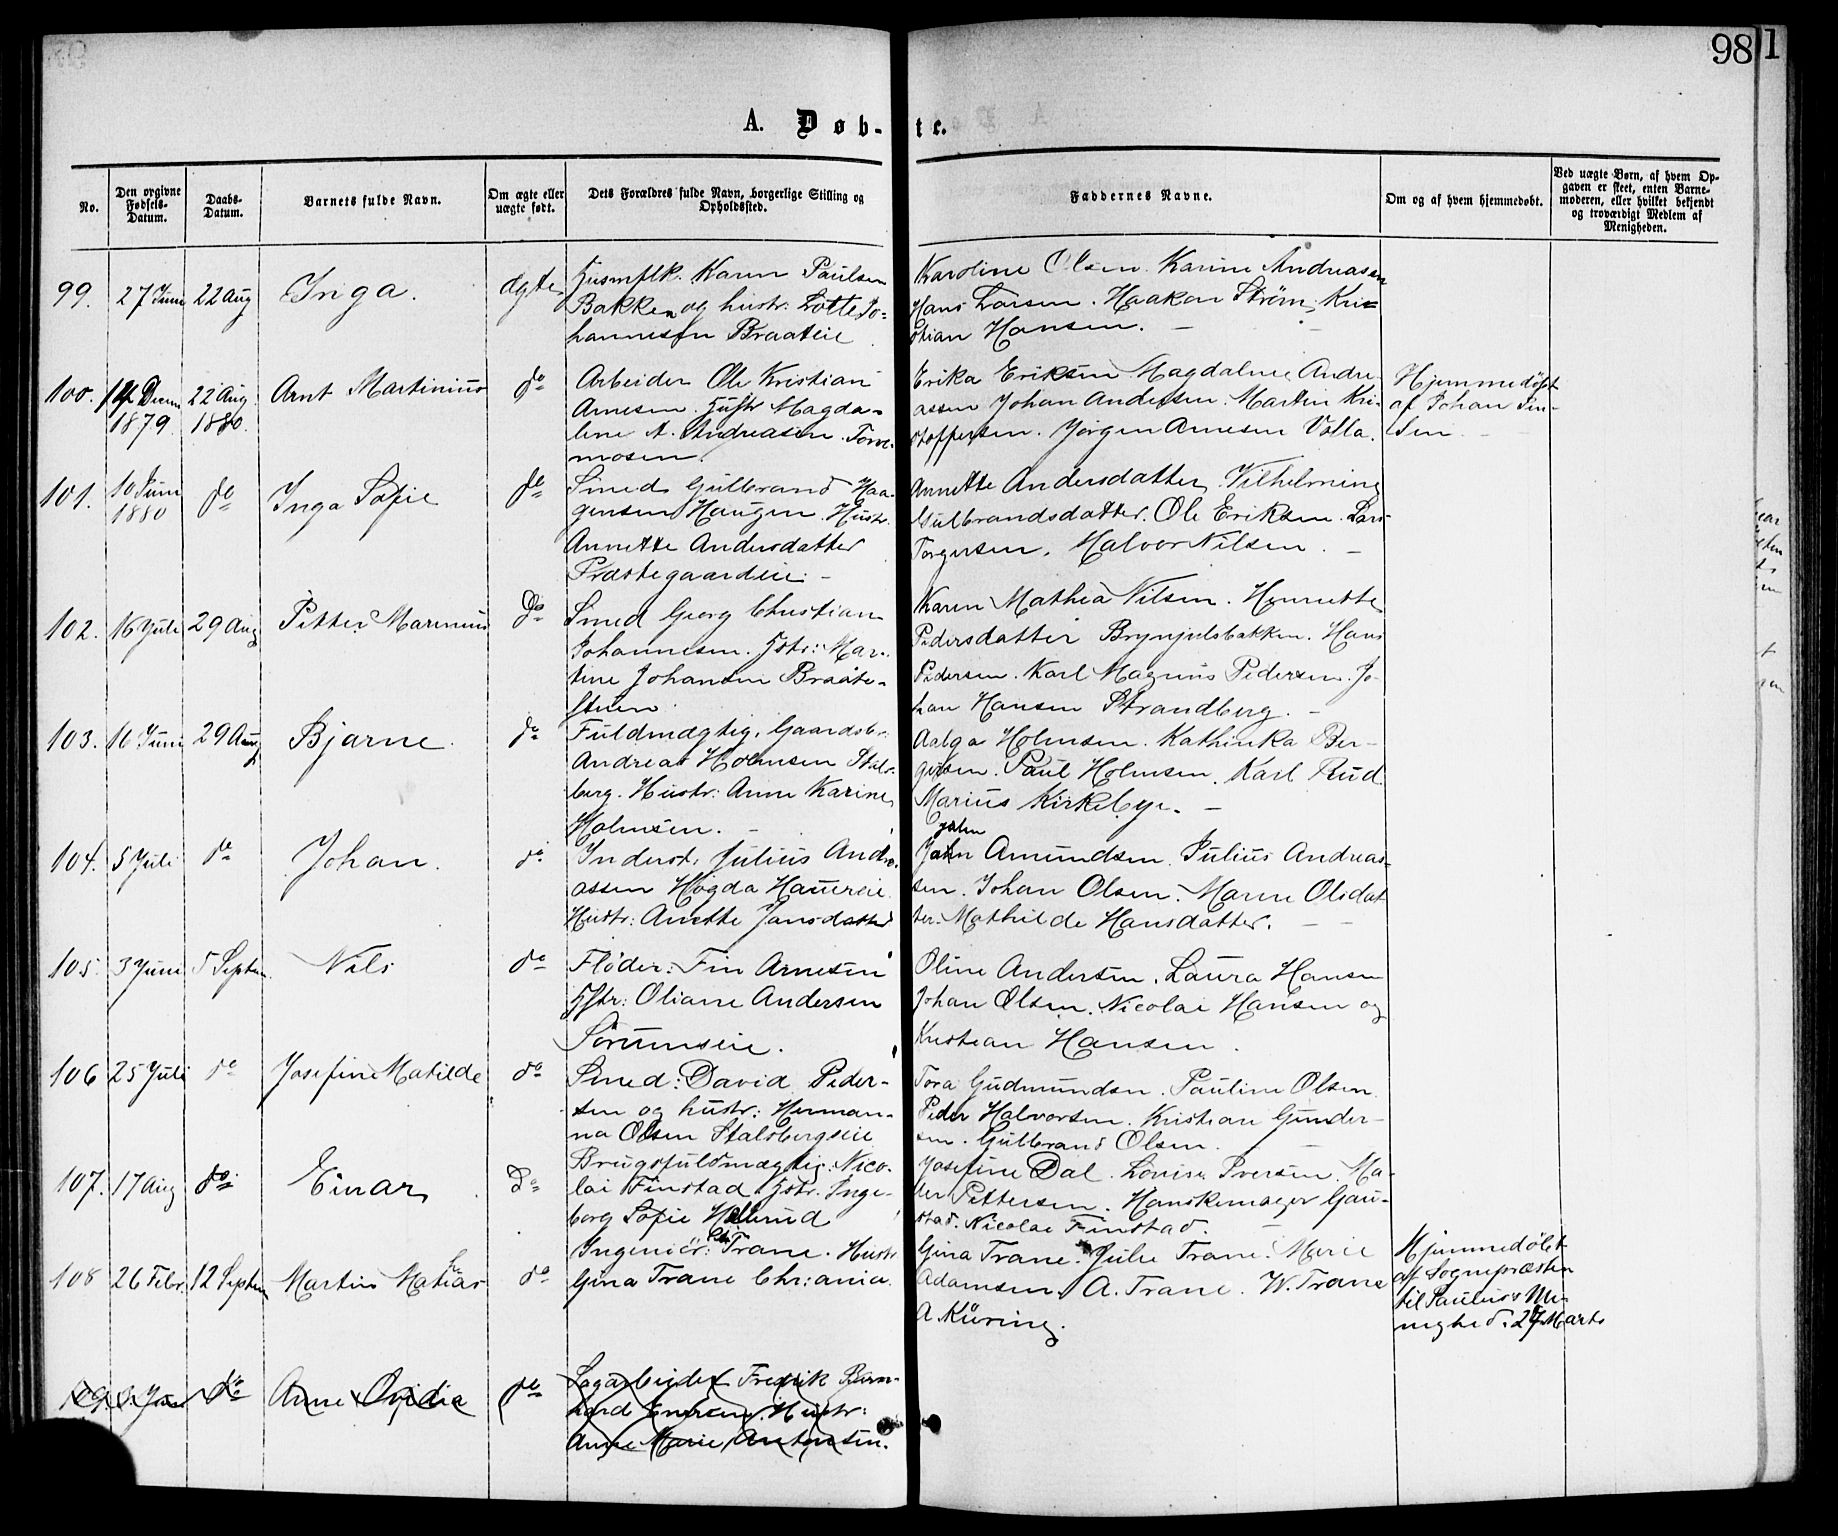 98 1
A. Døb-te.
No.
Den opgivne Fødsels-Datum.
Daabs-Datum.
Barnets fulde Navn.
Om ægte eller uægte født.
Dets Forældres fulde Navn, borgerlige Stilling og Opholdssted.
Faddernes Navne.
Om og af hvem hjemmedøbt.
Ved uægte Børn, af hvem Op-
gaven er skeet, enten Barne-
moderen, eller hvilket bekjendt
og troværdigt Medlem af
Menigheden.
99. 27 Juni 22 Aug Inga. ægte
Karen Paulsen
Bakken og hustr: Lotte Jo-
hannessen Braateie
Karoline Olsen. Karine Andreasen
Hans Larsen. Haakon Strøm, Kri-
stian Hansen. —
100. 14 Decem 1879 22 Aug. 1880. Arnt Martinius do
Arbeider Ole Kristian
Arnesen. Hustr Magda-
lene A. Andreasen. Torve-
mosen.
Erika Eriksen Magdalene Andre
assen Johan Andersen. Marten Kri-
stoffersen. Jørgen Arnesen Volla.
Hjemmedøbt
af Johan Jen-
sen
101. 10 Juni 1880 do Inga Sofie do
Smed Gulbrand Haa-
gensen Haugen. Hustr.
Annette Andersdatter
Præstegaardeie. -
Annette Andersdatter, Vilhelmine
Gulbrandsdatter. Ole Eriksen. Lars
Torgersen. Halvor Nilsen. —
102. 16 Juli 29 Aug Petter Marinius Do
Smed Georg Christian
Johannesen. Hstr: Mar-
tine Johansen Braate-
stuen.
Karen Mathea Nilsen. Henriette
Pedersdatter Brynjulsbakken. Hans
Pedersen. Karl Magnus Pedersen. Jo-
han Hansen Strandberg. —
103. 16 Juni 29 Aug Bjarne. do
Fuldmægtig, Gaardsbr.
Andreas Holmsen Stals-
berg. Hustr: Anne Karine
Holmsen. —
Aalga Holmsen. Kathinka Ber-
gersen. Paul Holmsen. Karl Rud
Marius Kirkebye. —
104. 5 Juli do Johan. do
Inderst. Julius Andre-
assen Høgda Hauereie
Hustr: Anette Jansdatter
John Amundsen. Julius Andreas-
sen. Johan Olsen. Maren Olsdat
ter. Mathilde Hansdatter. — —
105. 3 Juni 5 Septem Nils do
Fløder: Fin Arnesen
Hstr: Oliane Andersen
Sørumseie.
Oline Andersen. Laura Hansen
Johan Olsen. Nicolai Hansen og
Kristian Hansen.
106 25 Juli do Josefine Matilde do
Smed: David Peder-
sen og hustr: Herman-
na Olsen Stalsbergseie
Tora Gudmundsen. Pauline Olsen.
Peder Halvorsen. Kristian Gunder-
sen. Gulbrand Olsen. —
107. 17 Aug do Einar, Do
Brugsfuldmægtig: Nico-
lai Finstad Hstr. Inge-
borg Sofie
Josefine Dal. Lovise Iversen. Ma-
Pettersen. Hanskemager Gau-
stad. Nicolai Finstad. —
108 26 Febr. 12 Septem Martin Matias do
Ingeniør: Trane. Hustr
Gina Trane Chr:ania.
Gina Trane. Julie Trane. Marie
Adamsen. A. Trane. W. Trane
A. Küring.
Hjemmedøbt
af Sognepræsten
til Paulus's Me-
nighed. 27 Marts
109 Juni do Anne Ovidia do
Sagarbeider Fredrik Bern-
hard Enersen. Hustr:
Anne Marie Antonsen.